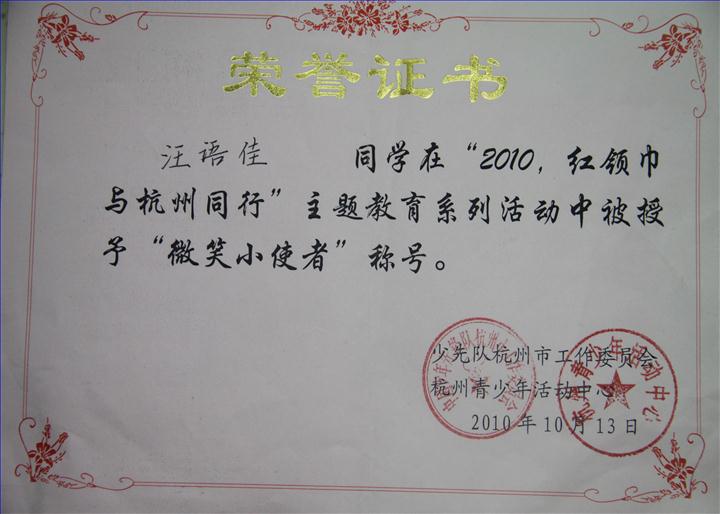 荣誉证书
汪语佳 同学在“2010，红领巾
与杭州同行”主题教育系列活动中被授
予“微笑小使者”称号。
少先队杭州市工作委员会
杭州青少年活动中心
2010年10月13日
杭州青少年活动中心